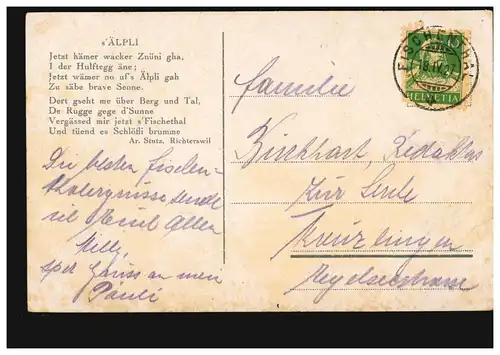 s'ÄLPLI
Jetzt hämer wacker Znüni gha,
I der Hulftegg äne;
Jetzt wämer no uf's Älpli gah
Zu säbe brave Senne.
Dert gseht me über Berg und Tal,
De Rugge gege d'Sunne
Vergässed mir jetzt s'Fischethal
Und tüend es Schlöfli brumme
Ar. Stutz, Richterswil
Die besten Fischen-
thalergrüsse sendet
Allen
Willy
Gruss an
Pauli
FISCHENTHAL
18.IV.27
HELVETIA
Familie
Kirchhart, Redaktor
Zur Linde
Kreuzlingen